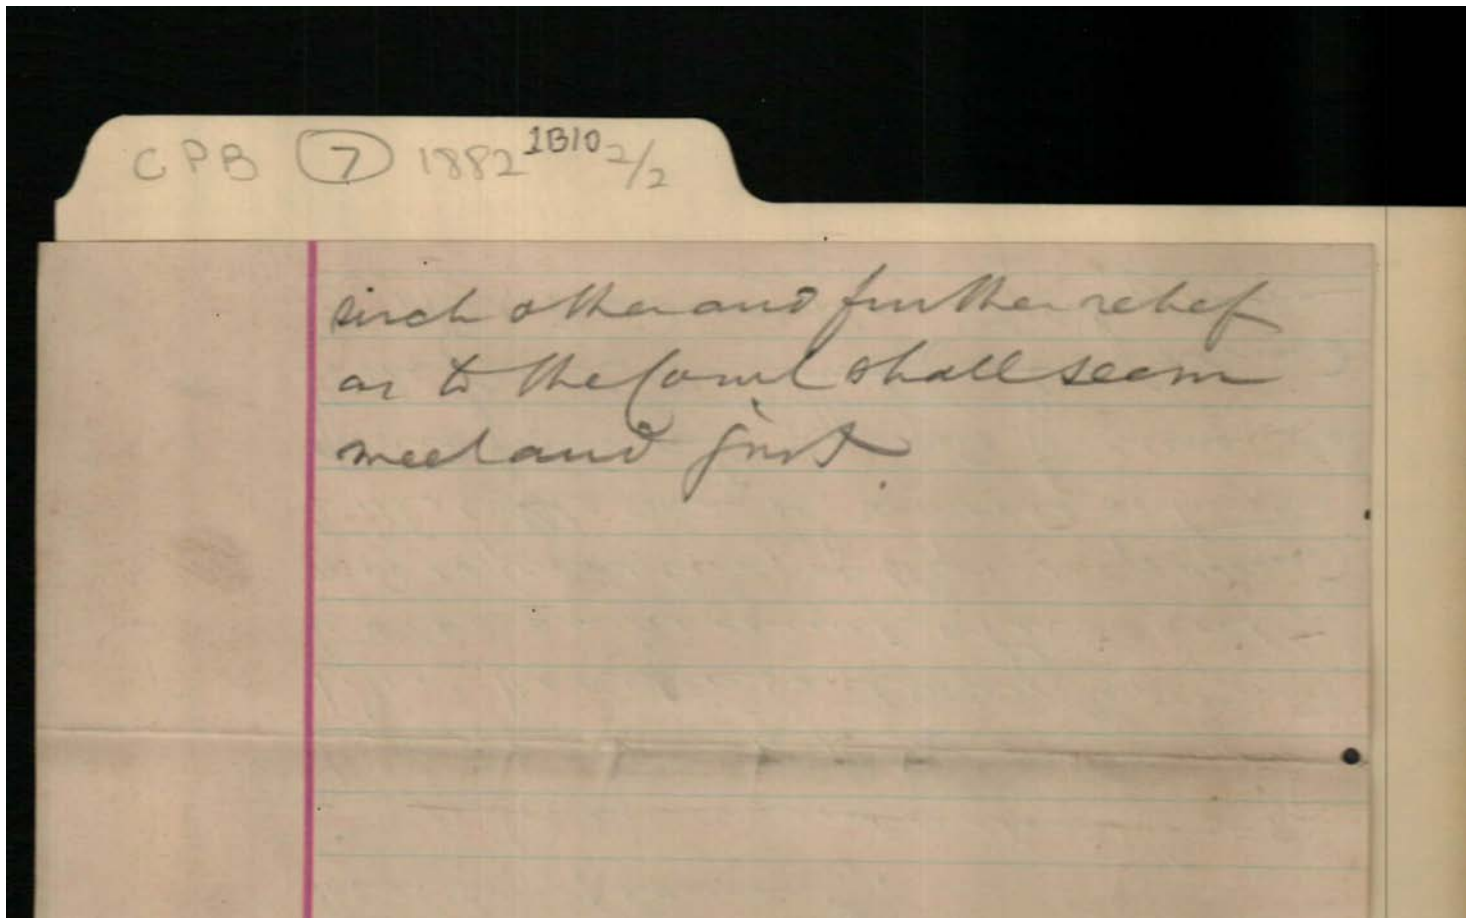 CPB 7 1882 1B10 2/2
such other and further relief
as to the Court shall seem
meet and just.